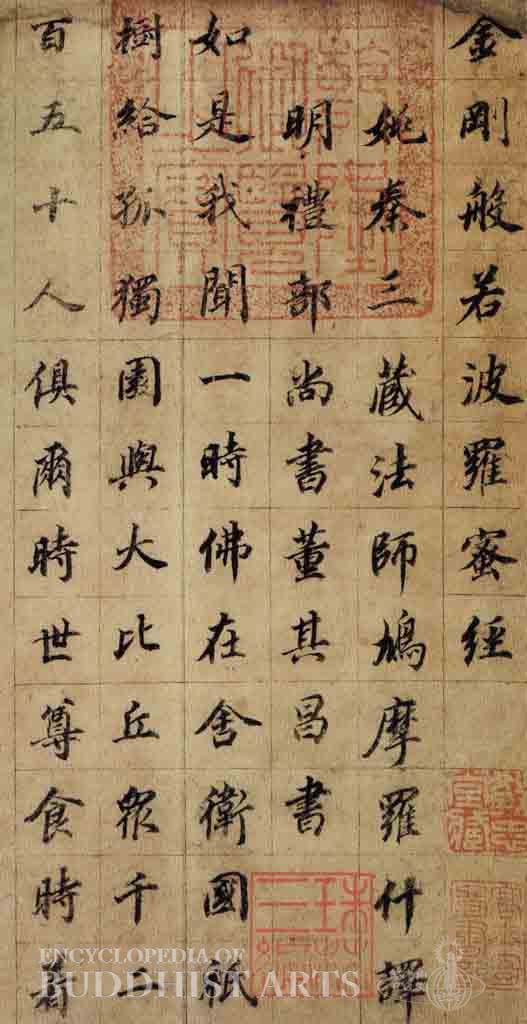 金剛般若波羅蜜經
姚秦三藏法師鳩摩羅什譯
明禮部尚書董其昌書
如是我聞一時佛在舍衛國祇
樹給孤獨園與大比丘衆千二
百五十人俱爾時世尊食時著
ENCYCLOPEDIA OF
BUDDHIST ARTS